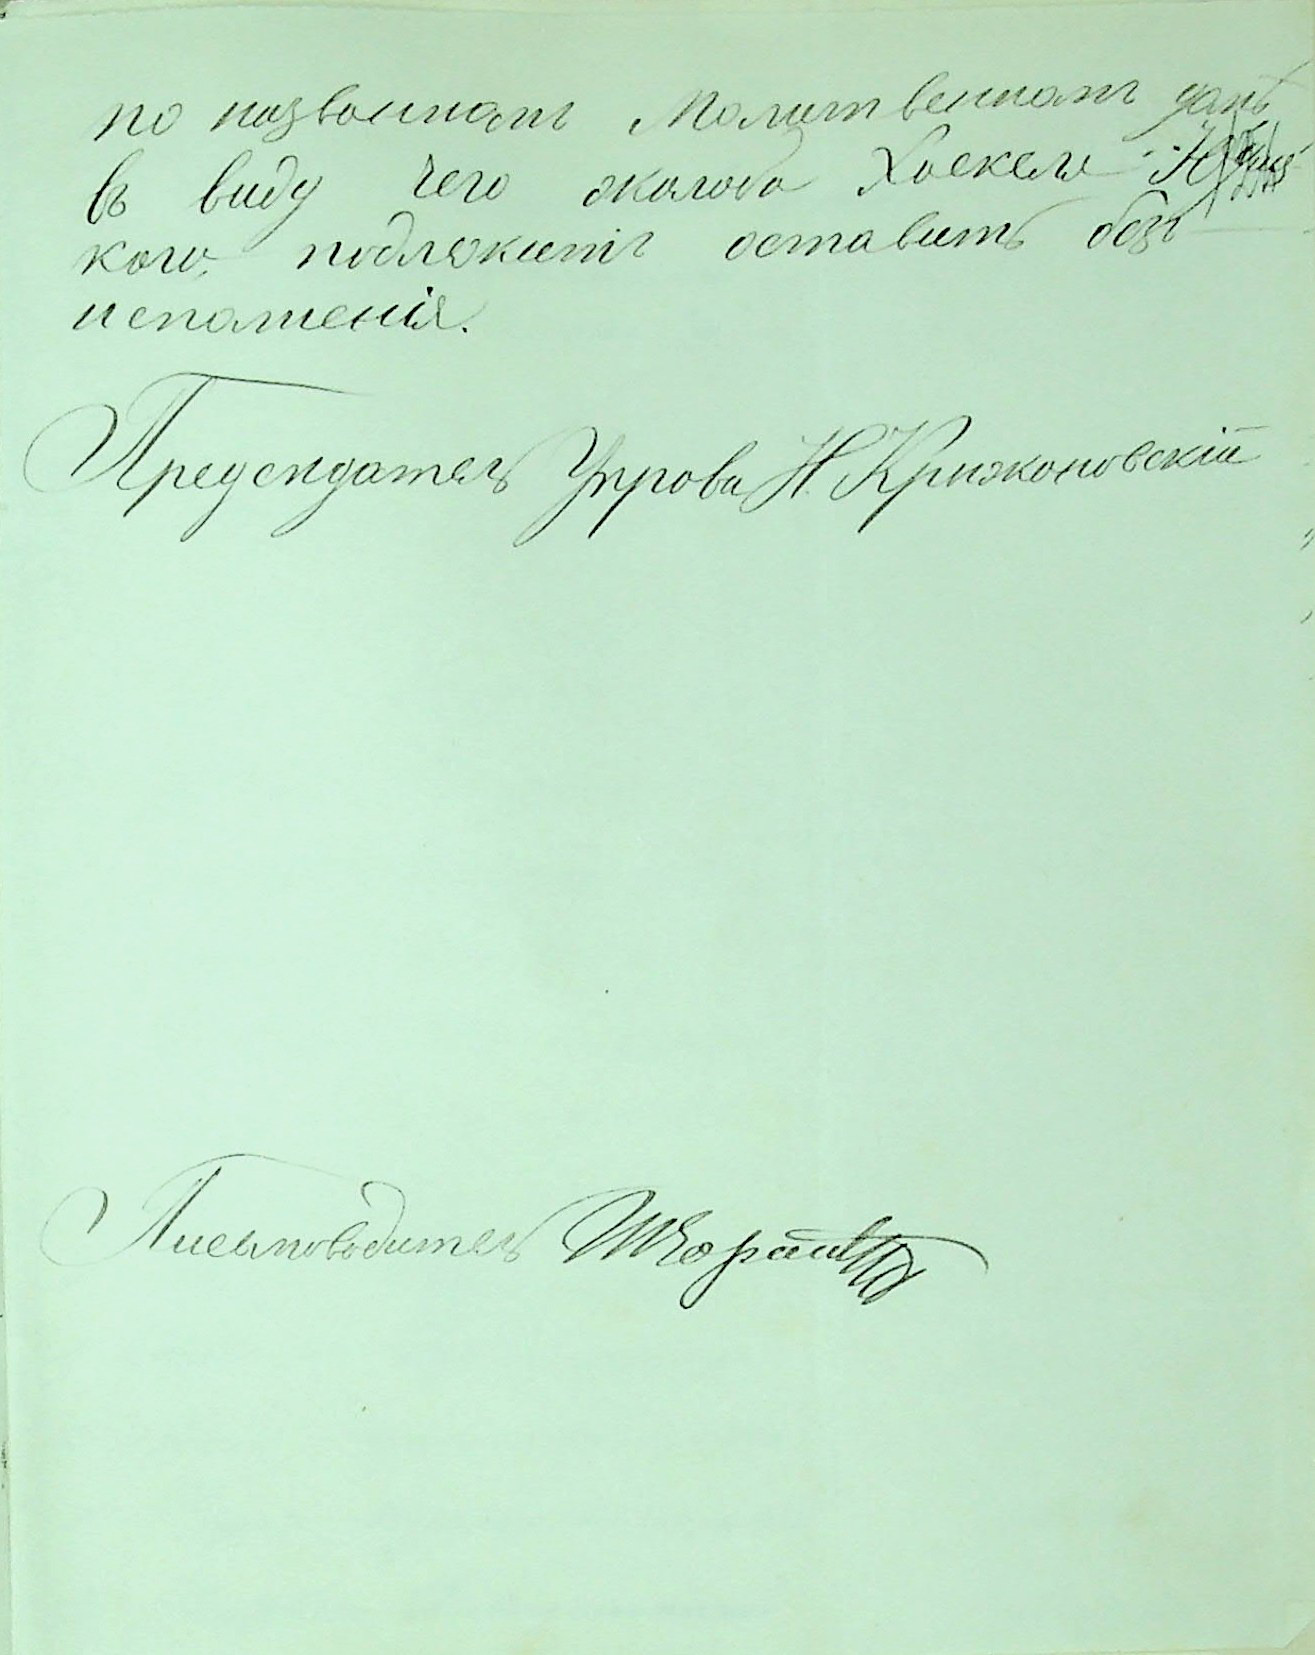 по названномъ Молитвенномъ домѣ
въ виду чего жалоба Хаскеля
кого, подлежитъ оставить безъ
исполненія.
Предсидатель Управы Н. Крижановскій
Письмоводитель